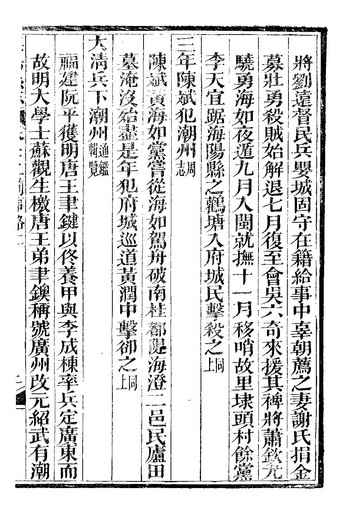 將劉遠督民兵嬰城固守在籍給事中辜朝薦之妻謝氏捐金
募壯勇殺賊始解退七月復至會吳六奇來援其裨將蕭欽允
驍勇海如夜遁九月入閩就撫十一月移哨故里埭頭村餘黨
李天宜踞海陽縣之鸛塘入府城民擊殺之同上
三年陳斌犯潮州周志
陳斌黃海如黨嘗從海如駕舟破南桂都隄海澄二邑民廬田
墓淹沒殆盡是年犯府城巡道黃潤中擊卻之同上
大清兵下潮州通鑑輯覽
福建阮平獲明唐王聿鍵以佟養甲與李成棟率兵定廣東而
故明大學士蘇觀生檄唐王弟聿𨮁稱號廣州改元紹武有潮